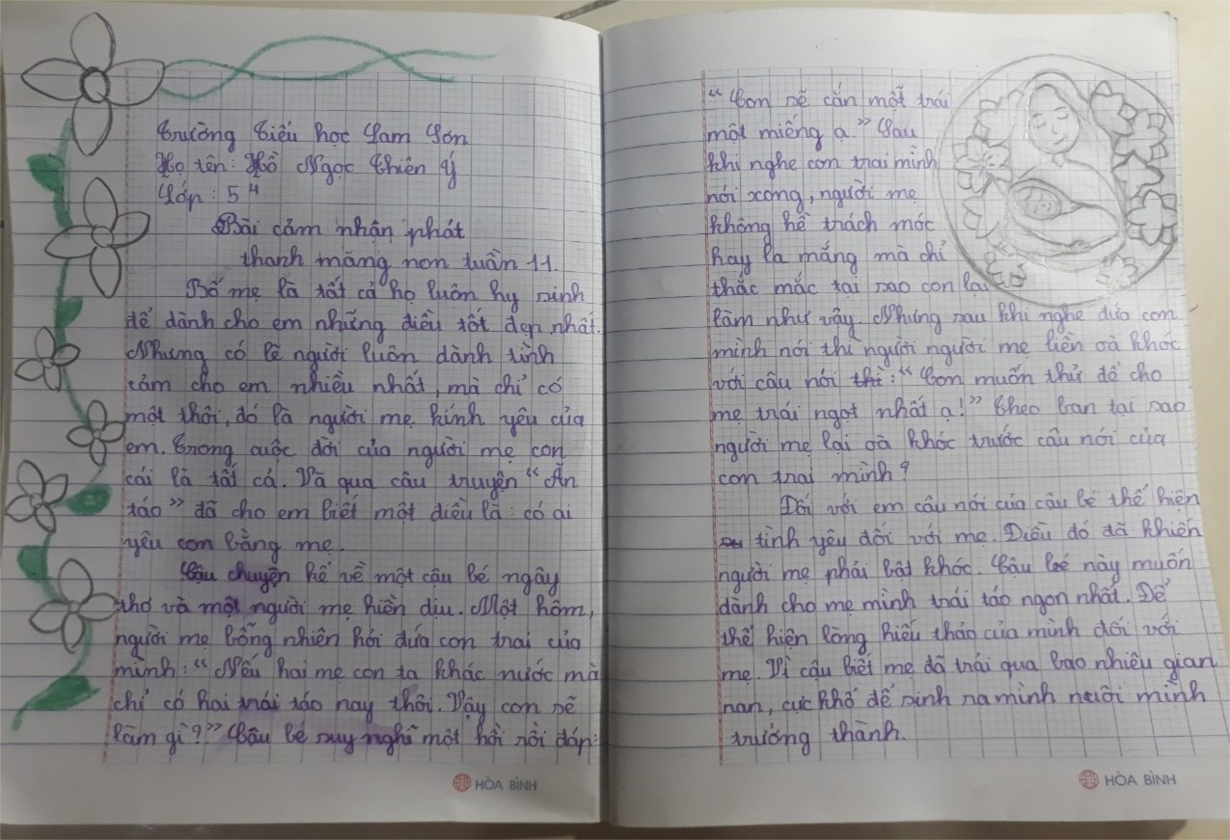 Trường Tiểu học Lam Sơn
Họ tên: Hồ Ngọc Thiên Ý
Lớp: 5⁴
Bài cảm nhận phát
thanh măng non tuần 11.
Bố mẹ là tất cả họ luôn hy sinh
để dành cho em những điều tốt đẹp nhất.
Nhưng có lẽ người luôn dành tình
cảm cho em nhiều nhất, mà chỉ có
một thôi, đó là người mẹ kính yêu của
em. Trong cuộc đời của người mẹ con
cái là tất cả. Và qua câu truyện “Ăn
táo” đã cho em biết một điều là: có ai
yêu con bằng mẹ.
Câu chuyện kể về một cậu bé ngây
thơ và một người mẹ hiền dịu. Một hôm,
người mẹ bỗng nhiên hỏi đứa con trai của
mình: “Nếu hai mẹ con ta khác nước mà
chỉ có hai trái táo nay thôi. Vậy con sẽ
làm gì?” Cậu bé suy nghĩ một hồi rồi đáp:
“Con sẽ cắn mỗi trái
một miếng ạ.” Sau
khi nghe con trai mình
nói xong, người mẹ
không hề trách móc
hay la mắng mà chỉ
thắc mắc tại sao con lại
làm như vậy. Nhưng sau khi nghe đứa con
mình nói thì người người mẹ liền oà khóc
với câu nói thì: “Con muốn thử để cho
mẹ trái ngọt nhất ạ!” Theo bạn tại sao
người mẹ lại oà khóc trước câu nói của
con trai mình?
Đối với em câu nói của cậu bé thể hiện
tình yêu đối với mẹ. Điều đó đã khiến
người mẹ phải bật khóc. Cậu bé này muốn
dành cho mẹ mình trái táo ngon nhất. Để
thể hiện lòng hiếu thảo của mình đối với
mẹ. Vì cậu biết mẹ đã trải qua bao nhiêu gian
nan, cực khổ để sinh ra mình nuôi mình
trưởng thành.
HÒA BÌNH
HÒA BÌNH